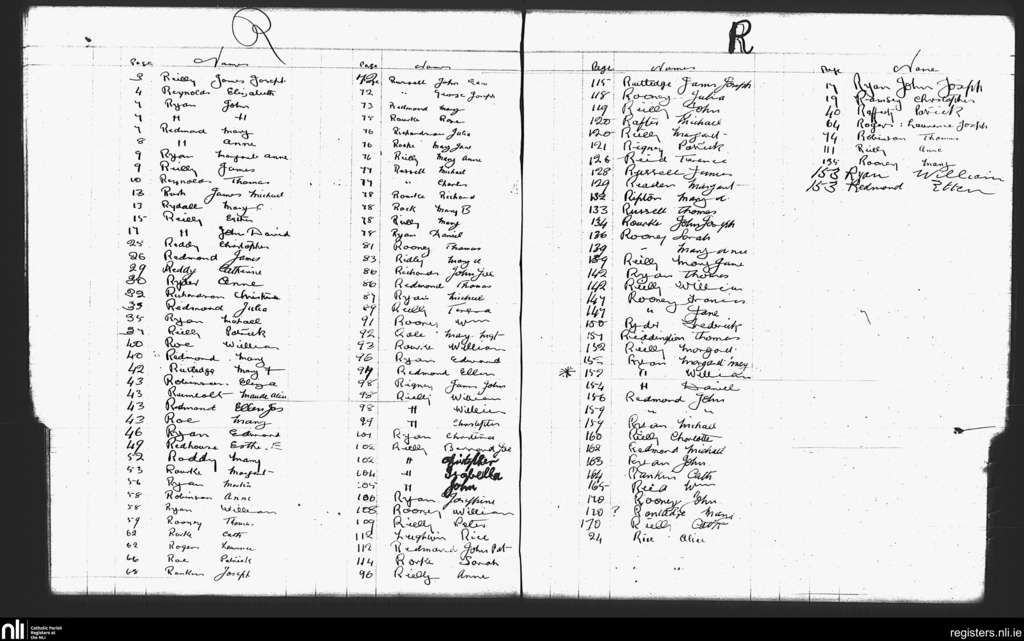 R
Page Names
3 Reilly James Joseph
4 Reynolds Elizabeth
7 Ryan John
7 " "
7 Redmond Mary
8 " Anne
9 Ryan Margaret Anne
9 Reilly James
10 Reynolds Thomas
13 Rush James Michael
13 Rydall Mary C
15 Reilly Esther
17 " John David
25 Roddy Christopher
26 Redmond James
29 Reddy Catherine
30 Ryder Anne
32 Richardson Christina
35 Redmond Julia
35 Ryan Michael
37 Reilly Patrick
40 Roe William
40 Redmond Mary
42 Rutledge Mary
43 Robinson Eliza
43 Maude Alice
43 Redmond Ellen Jos
43 Roe Mary
46 Ryan Edmond
49 Redhouse Esther E
52 Roddy Mary
53 Rourke Margaret
56 Ryan Martin
58 Robinson Anne
58 Ryan William
59 Rooney Thomas
62 Rorke Cath
62 Rogers Laurence
66 Roe Patrick
68 Rankin Joseph
Page Names
72 Russell John
72 " George Joseph
73 Redmond Mary
75 Rourke Rose
76 Richardson Julia
76 Rorke Mary Jane
76 Reilly Mary Anne
77 Russell Michael
77 " Charles
78 Rourke Richard
78 Rock Mary B
78 Reilly Mary
78 Ryan Daniel
81 Rooney Thomas
83 Ridley Mary A
86 Richards John Jos
86 Redmond Thomas
87 Ryan Michael
89 Reilly Teresa
91 Rooney Wm
92 Mary Mgt
93 Rourke William
96 Ryan Edward
94 Redmond Ellen
98 Rigney James John
98 Reilly William
98 " William
99 " Christopher
101 Ryan Christina
102 Reilly Bernard Jos
102 " Christopher
104 " Isabella
105 " John
106 Ryan Josephine
108 Rooney William
109 Reilly Peter
112 Rice
112 Redmond John Pat
114 Rorke Sarah
96 Reilly Anne
R
Page Names
115 Rutledge James Joseph
118 Rooney Julia
119 Reilly John
120 Rafter Michael
120 Reilly Margaret
121 Rigney Patrick
126 Reid Terence
128 Russell James
129 Readen Margaret
132 Ripton Mary A
133 Russell Thomas
134 Rourke John Joseph
136 Rooney Sarah
139 " Mary Anne
139 Reilly Mary Jane
142 Ryan Thomas
142 Reilly William
147 Rooney Francis
147 " Jane
150 Ryder Frederick
151 Reddington Thomas
152 Reilly Margaret
152 Ryan Margaret Mary
* 152 " William
154 " Daniel
156 Redmond John
159 " "
159 Ryan Michael
160 Reilly Charlotte
162 Redmond Michael
163 Ryan John
164 Rankins Cath
165 Reid Wm
170 Rooney John
170 ? Mary
170 Reilly Cath
24 Rice Alice
Page Name
17 Ryan John Joseph
19 Ramsey Christopher
40 Rafferty Patrick
64 Rogers Laurence Joseph
74 Robinson Thomas
111 Reilly Anne
135 Rooney Mary
153 Ryan William
153 Redmond Ellen
nli
Catholic Parish
Registers at
the NLI
registers.nli.ie